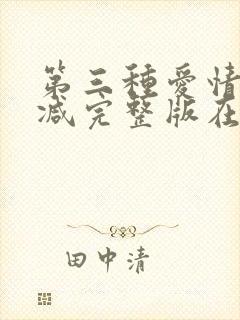 第三種愛情
減完整版在
田中清